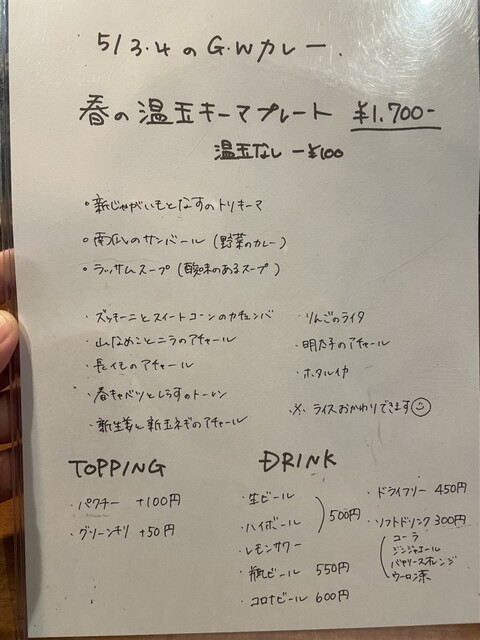 5/3.4のG.Wカレー.
春の温玉キーマプレート ¥1.700-
温玉なし -¥100
・新じゃがいもとなすのトリキーマ
・南瓜のサンバール(野菜のカレー)
・ラッサムスープ(酸味のあるスープ)
・ズッキーニとスイートコーンのカチュンバ
・山なめことニラのアチャール
・長イモのアチャール
・春キャベツとしらすのトーレン
・新生姜と新玉ネギのアチャール
・りんごのライタ
・明太子のアチャール
・ホタルイカ
※ ライスおかわりできます
TOPPING
・パクチー +100円
・グリーンチリ +50円
DRINK
・生ビール
・ハイボール 500円
・レモンサワー
・瓶ビール 550円
・コロナビール 600円
・ドライフリー 450円
・ソフトドリンク 300円
コーラ
ジンジャエール
バヤリースオレンジ
ウーロン茶